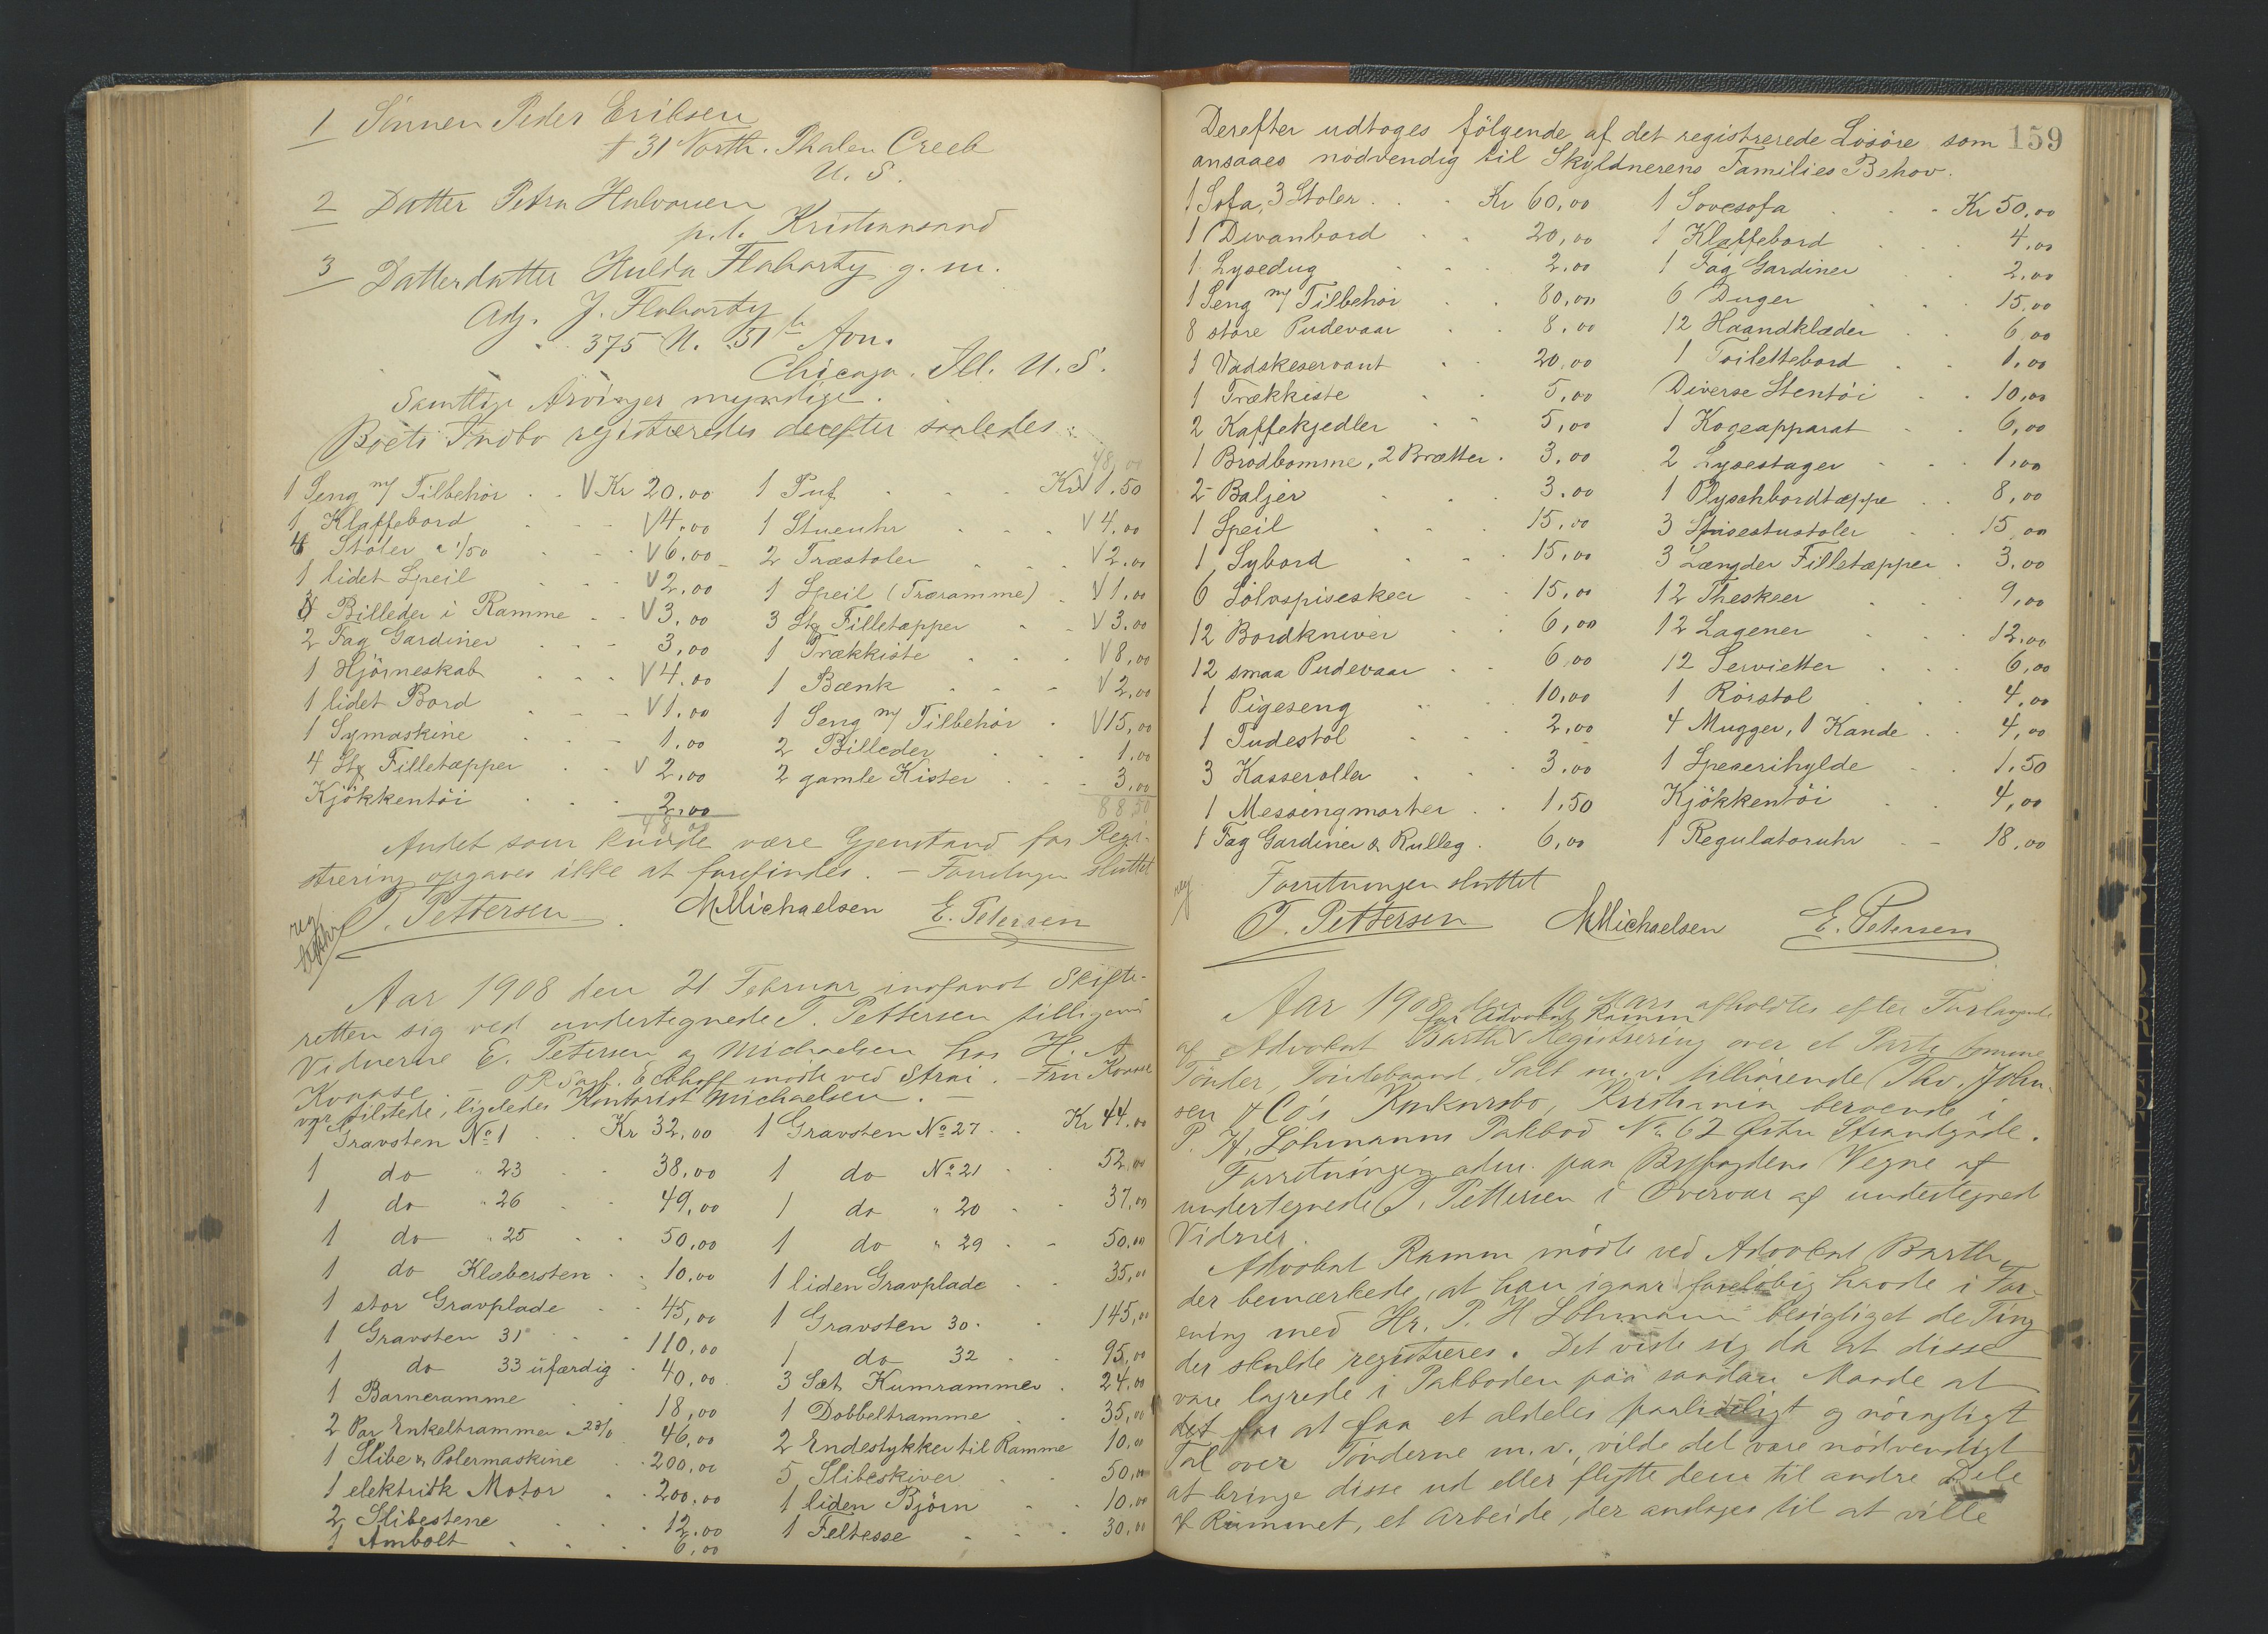 1 Sönnen Peder Eriksen
# 31 North. Phalen Creek
U. S.
2 Datter Petra Halvorsen
p.t. Kristiansand
3 Datterdatter Hulda Flaharty g. m.
Adr. J. Flaharty
375 N. 51th Avn.
Chicago. Ill. U. S.
Samtlige Arvinger myndige.
Boets Indbo registreredes derefter saaledes:
48,00
1 Seng m/ Tilbehör V Kr 20.00 1 Puf Kr V 1.50
1 Klaffebord V 4.00 1 Stueuhr V 4.00
4 Stoler a 1/50 V 6.00 2 Træstoler V 2.00
1 lidet Speil V 2.00 1 Speil (Træramme) V 1.00
3 Billeder i Ramme V 3,00 3 Stk Filletæpper V 3.00
2 Fag Gardiner 3,00 1 Trækkiste V 8,00
1 Hjörneskab V 4.00 1 Bænk V 2,00
1 lidet Bord V 1.00 1 Seng m/ Tilbehör V 15,00
1 Symaskine 1.00 2 Billeder 1.00
4 Stk Filletæpper V 2,00 2 gamle Kister 3,00
Kjökkentöi 2.00 88,50
48,00
Andet som kunde være Gjenstand for Regi-
strering opgaves ikke at forefindes. – Forretningen sluttet
reg
T. Pettersen MMichaelsen E. Petersen
Aar 1908 den 21 Februar indfandt Skifte-
retten sig ved undertegnede T. Pettersen tilligemed
Vidnerne E. Petersen og Michaelsen hos H. A
Kvaase. – O.R.Sagf. Eckhoff mödte ved Strai. – Fru Kvaase
var tilstede, ligeledes Kontorist Michaelsen. –
1 Gravsten No 1 Kr 32,00 1 Gravsten No 27 Kr 44.00
1 do " 23 38,00 1 do No 21 52,00
1 do " 26 49,00 1 do " 20 37,00
1 do " 25 50,00 1 do " 29 50,00
1 do Klæbersten 10,00 1 liden Gravplade 35,00
1 stor Gravplade 45,00 1 Gravsten 30 145,00
1 Gravsten 31 110,00 1 do 32 95,00
1 do 33 ufærdig 40,00 3 Sæt Kumrammer 24,00
1 Barneramme 18,00 1 Dobbeltramme 35,00
2 Par Enkeltrammer a 23/0 46,00 2 Endestykker til Ramme 10,00
1 Slibe & Polermaskine 200,00 5 Slibeskiver 50,00
1 elektrisk Motor 200,00 1 liden Björn 10,00
2 Slibestene 12.00 1 Feltesse 30,00
1 Ambolt 6,00
159
Derefter udtoges fölgende af det registrerede Lösöre som
ansaaes nödvendig til Skyldnerens Families Behov.
1 Sofa, 3 Stoler Kr 60,00 1 Sovesofa Kr 50,00
1 Divanbord 20,00 1 Klaffebord 4,00
1 Lysedug 2,00 1 Fag Gardiner 2,00
1 Seng m/ Tilbehör 80,00 6 Duger 15,00
8 store Pudevaar 8,00 12 Haandklæder 6,00
1 Vadskeservant 20,00 1 Toilettebord 1,00
1 Trækkiste 5,00 Diverse Stentöi 10,00
2 Kaffekjedler 5,00 1 Kogeapparat 6,00
1 Brödbomme, 2 Brætter 3,00 2 Lysestager 1,00
2 Baljer 3,00 1 Plyschbordtæppe 8,00
1 Speil 15,00 3 Spisestustoler 15,00
1 Sybord 15,00 3 Længder Filletæpper 3,00
6 Sölvspiseskeer 15,00 12 Theskeer 9,00
12 Bordkniver 6,00 12 Lagener 12,00
12 smaa Pudevaar 6,00 12 Servietter 6,00
1 Pigeseng 10,00 1 Rörstol 4,00
1 Pudestol 2,00 4 Mugger, 1 Kande 4,00
3 Kasseroller 3,00 1 Specerihylde 1,50
1 Messingmorter 1,50 Kjökkentöi 4,00
1 Fag Gardiner & Rulleg. 6,00 1 Regulatoruhr 18,00
reg
Forretningen sluttet
T. Pettersen MMichaelsen E. Petersen
Aar 1908 den 10 Mars afholdtes efter Forlangende
for Advokat Ramm
af Advokat Barth V Registrering over et Parti tomme
Tönder, Töndebaand, Salt m.v. tilhörende Thv. John-
sen & Co's Konkursbo, Kristiania beroende i
P. H. Löhmanns Pakbod No 62 Östre Strandgade.
Forretningen adm. paa Byfogdens Vegne af
undertegnede T. Pettersen i Overvær af undertegnede
Vidner.
Advokat Ramm mödte ved Advokat Barth,
der bemærkede, at han igaar forelöbig havde i For-
ening med Hr. P. H Löhmann besigtiget de Ting
der skulde registreres. Det viste sig da at disse
vare lagrede i Pakboden paa saadan Maade at
det for at faa et aldeles paalideligt og nöiagtigt
Tal over Tönderne m.v., vilde det være nödvendigt
at bringe disse ud eller flytte dem til andre Dele
af Rummet, et Arbeide, der antages til at ville